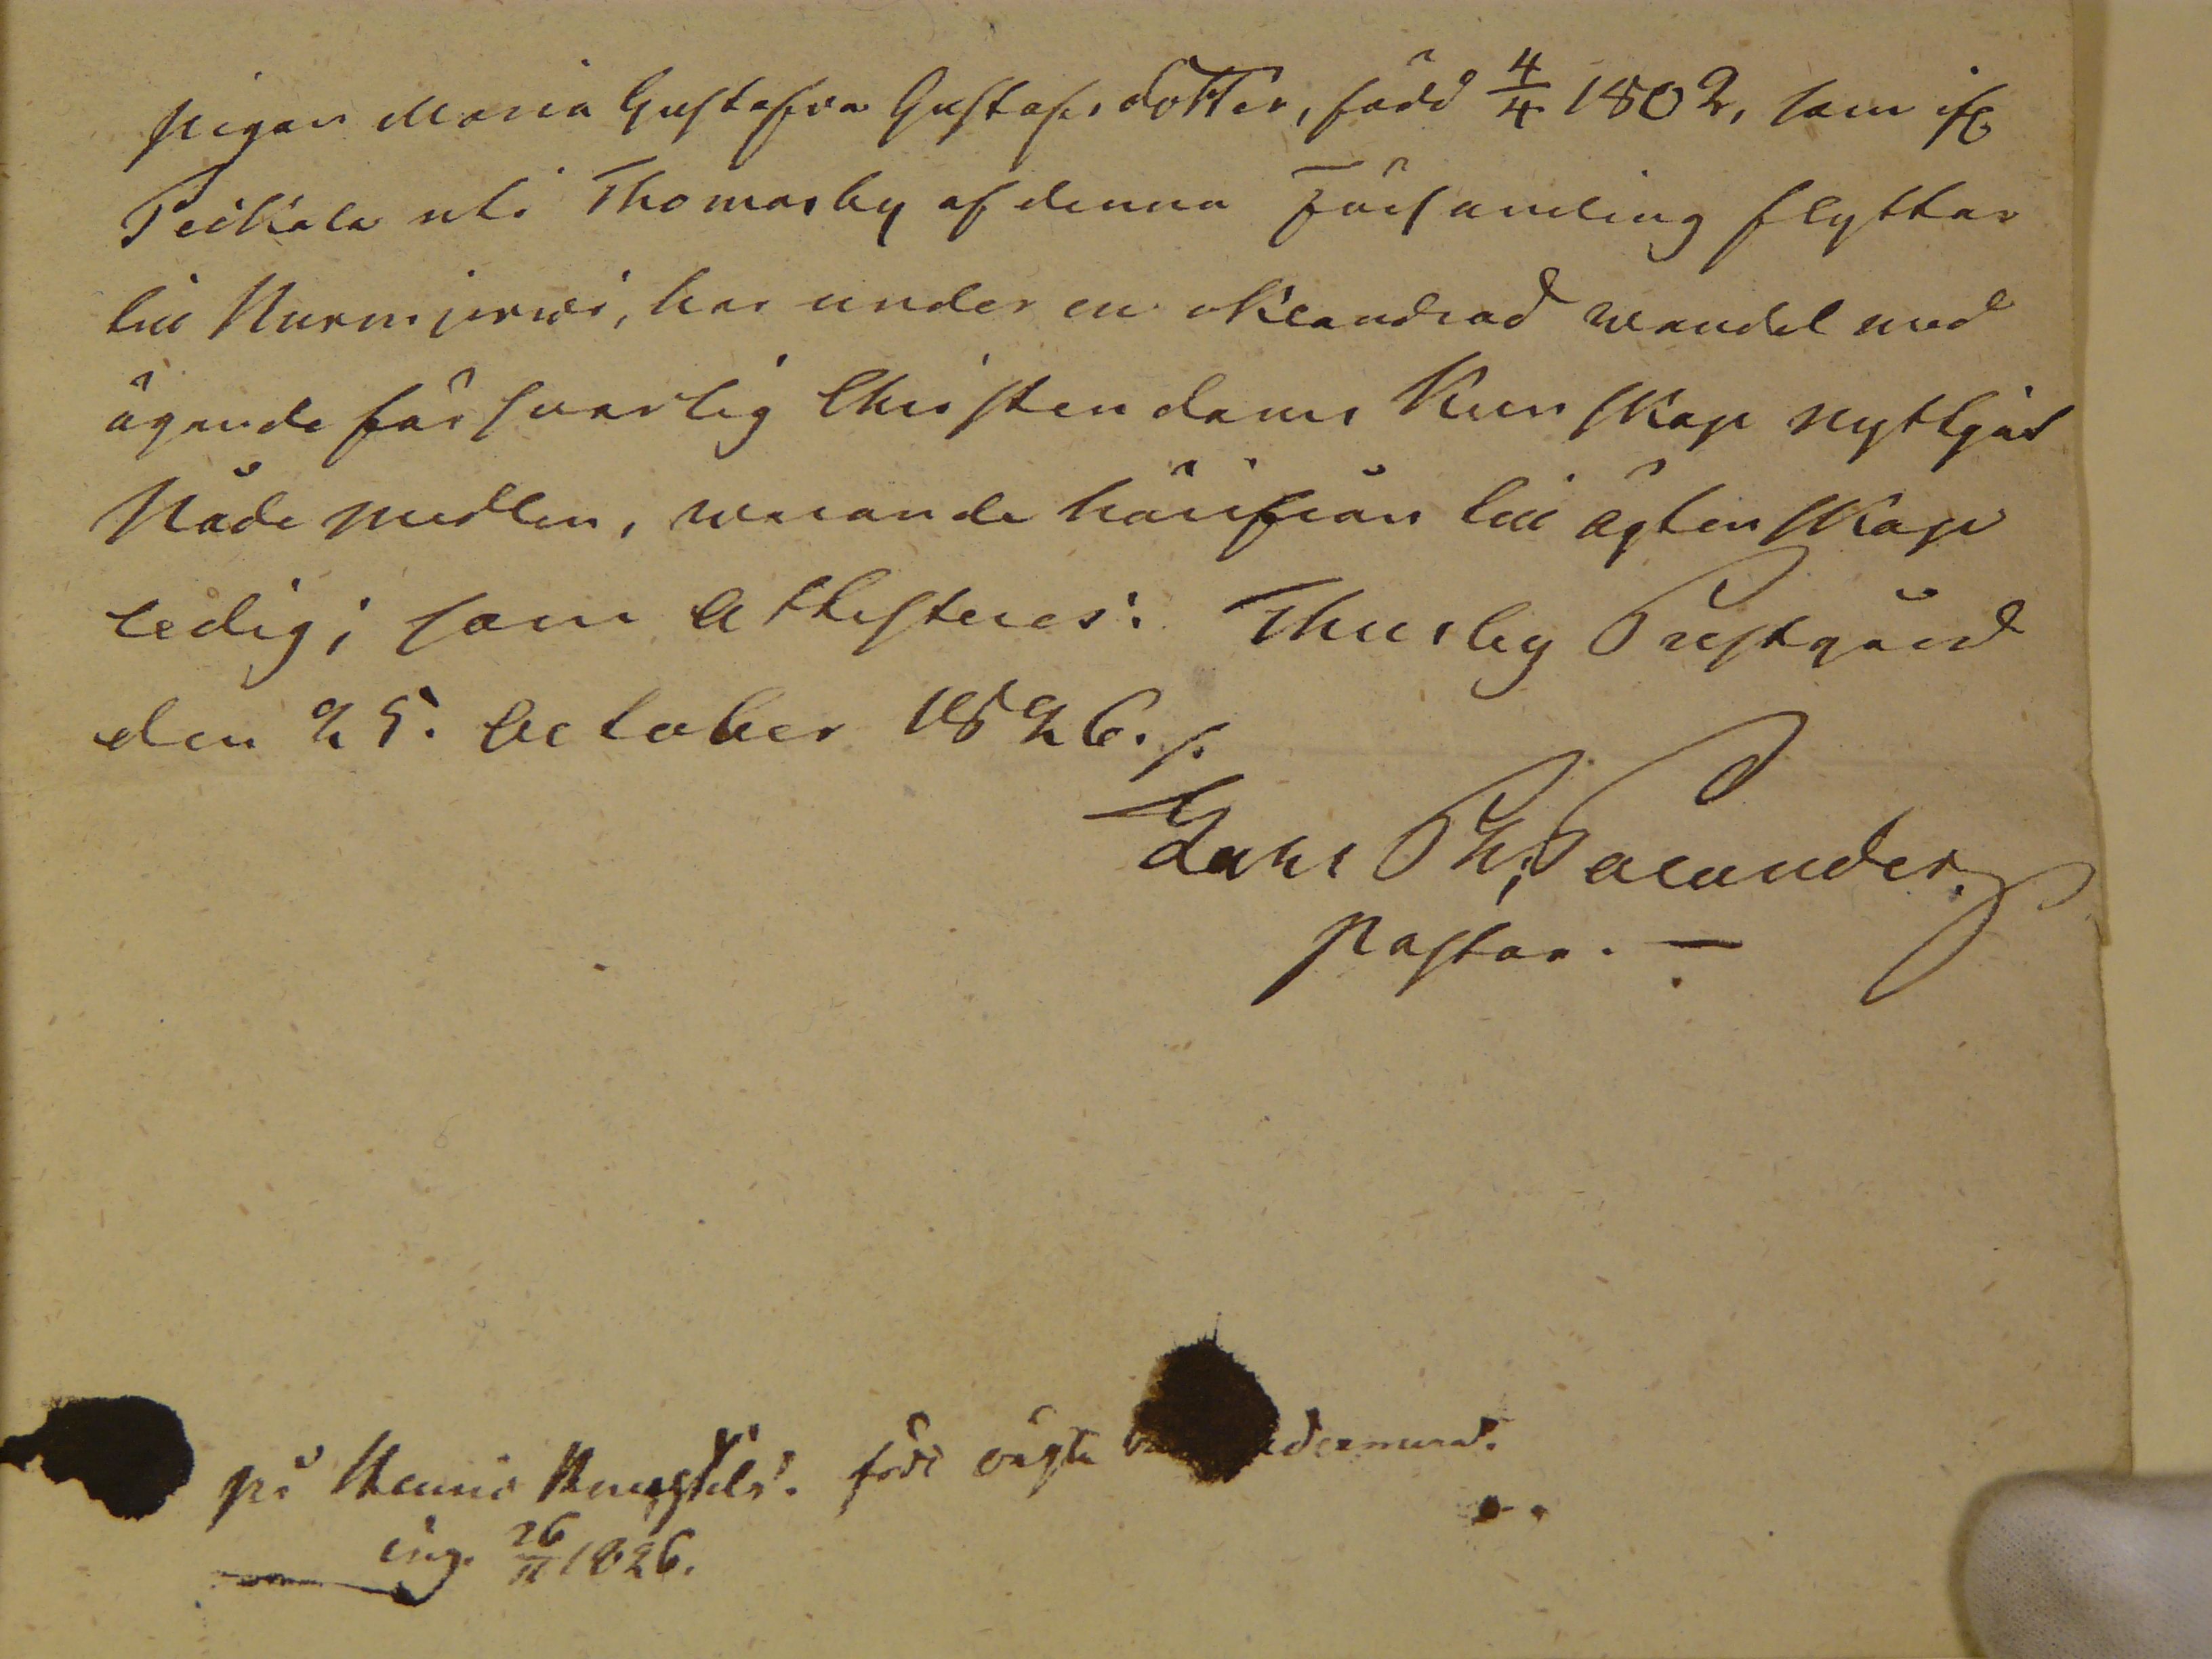 pigan Maria Gustafva Gustafsdotter, född 4/4 1802, som ifr.
Peikala uti Thomasby af denna Församling flyttar
till Nurmjerwi, har under en oklandrad wandel med
ägande försvarlig Christendoms Kunskap nyttjat
Nådemedlen, warande härifrån till ägtenskap
ledig; som attesteras: Thusby Prestgård
den 25. October 1826. /.
Lars Ph. Palander.
Pastor. —
på
föde oägta
ing. 26/11 1826.